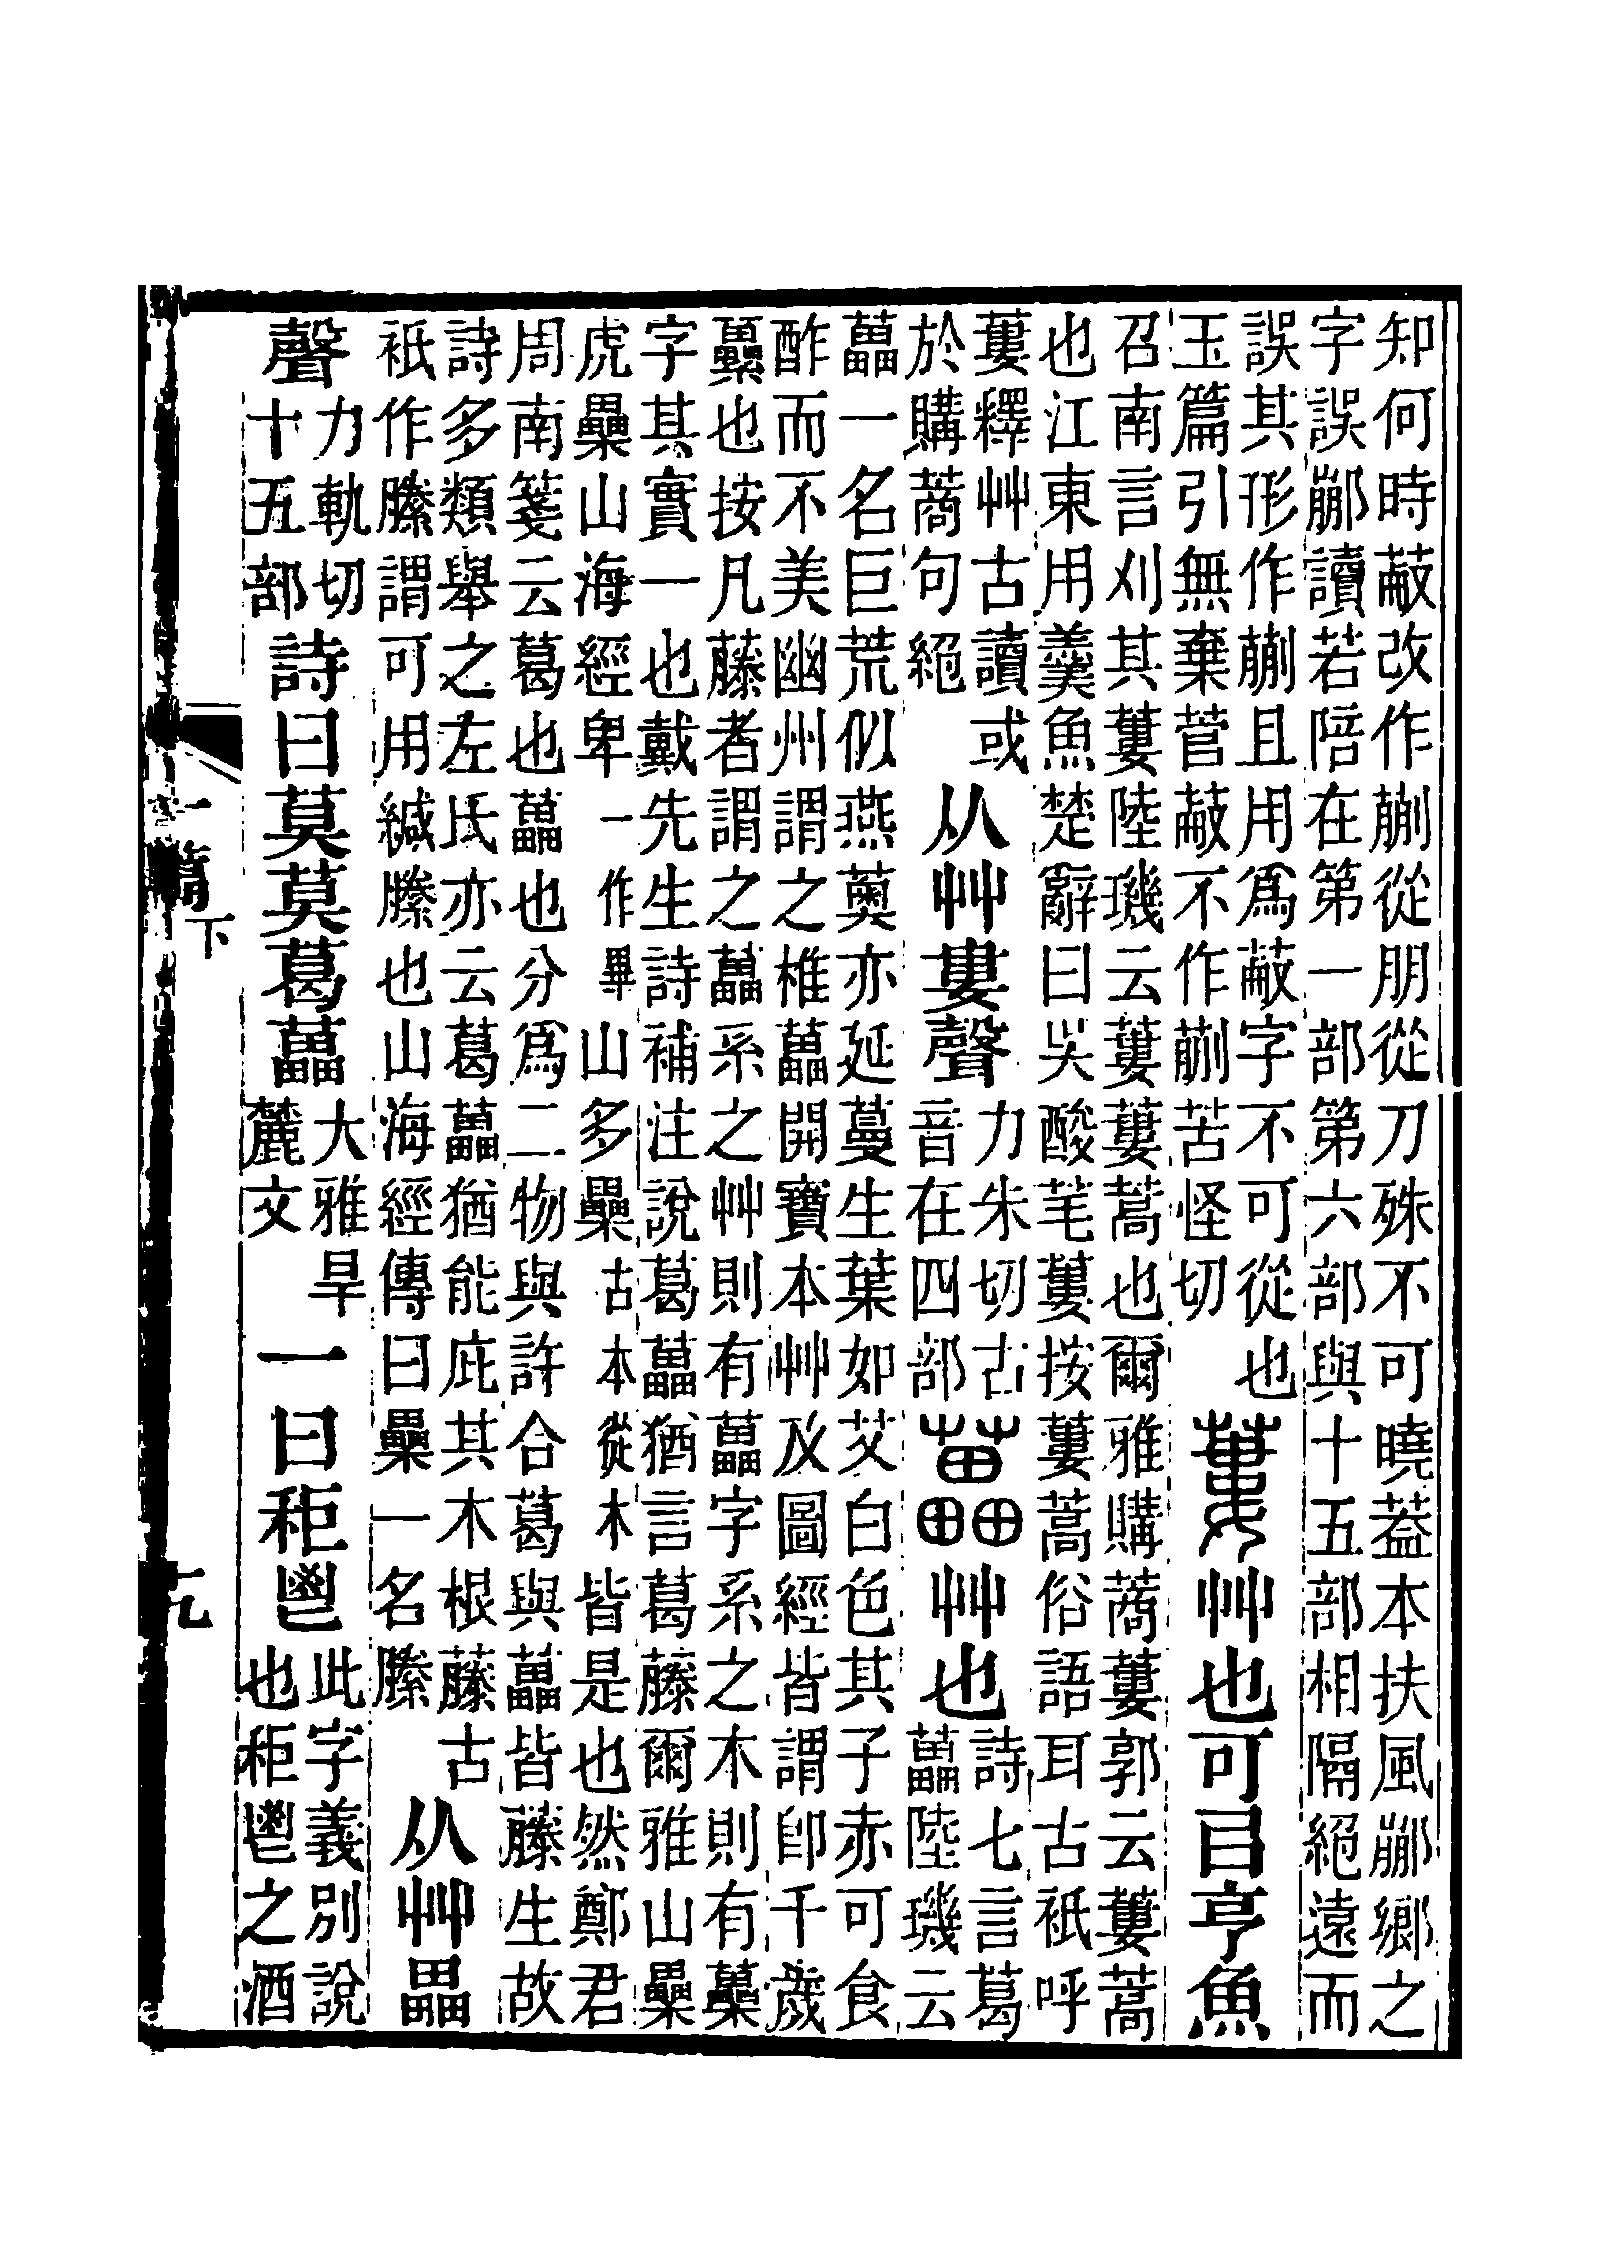 知何時蔽改作蒯從朋從刀殊不可曉葢本扶風𨛍鄉之
字誤𨛍讀若陪在第一部第六部與十五部相隔絕遠而
誤其形作蒯且用爲蔽字不可從也
玉篇引無棄菅蔽不作蒯苦怪切
蔞艸也可㠯亨魚
召南言刈其蔞陸璣云蔞蔞蒿也爾雅購蔏蔞郭云蔞蒿
也江東用羹魚楚辭曰吳酸芼蔞按蔞蒿俗語耳古祇呼
蔞釋艸古讀或
於購蔏句絕
从艸婁聲
力朱切古
音在四部
藟艸也
詩七言葛
藟陸璣云
藟一名巨荒似燕薁亦延蔓生葉如艾白色其子赤可食
酢而不美幽州謂之椎藟開寶本艸及圖經皆謂卽千歲
虆也按凡藤者謂之藟系之艸則有藟字系之木則有蘽
字其實一也戴先生詩補注說葛藟猶言葛藤爾雅山櫐
虎櫐山海經卑一作畢山多櫐古本從木皆是也然鄭君
周南箋云葛也藟也分爲二物與許合葛與藟皆藤生故
詩多類舉之左氏亦云葛藟猶能庇其木根藤古
祇作縢謂可用緘縢也山海經傳曰櫐一名縢
从艸畾
聲
力軌切
十五部
詩曰莫莫葛藟
大雅旱
麓文
一曰秬鬯
此字義別說
也秬鬯之酒
一篇下
九